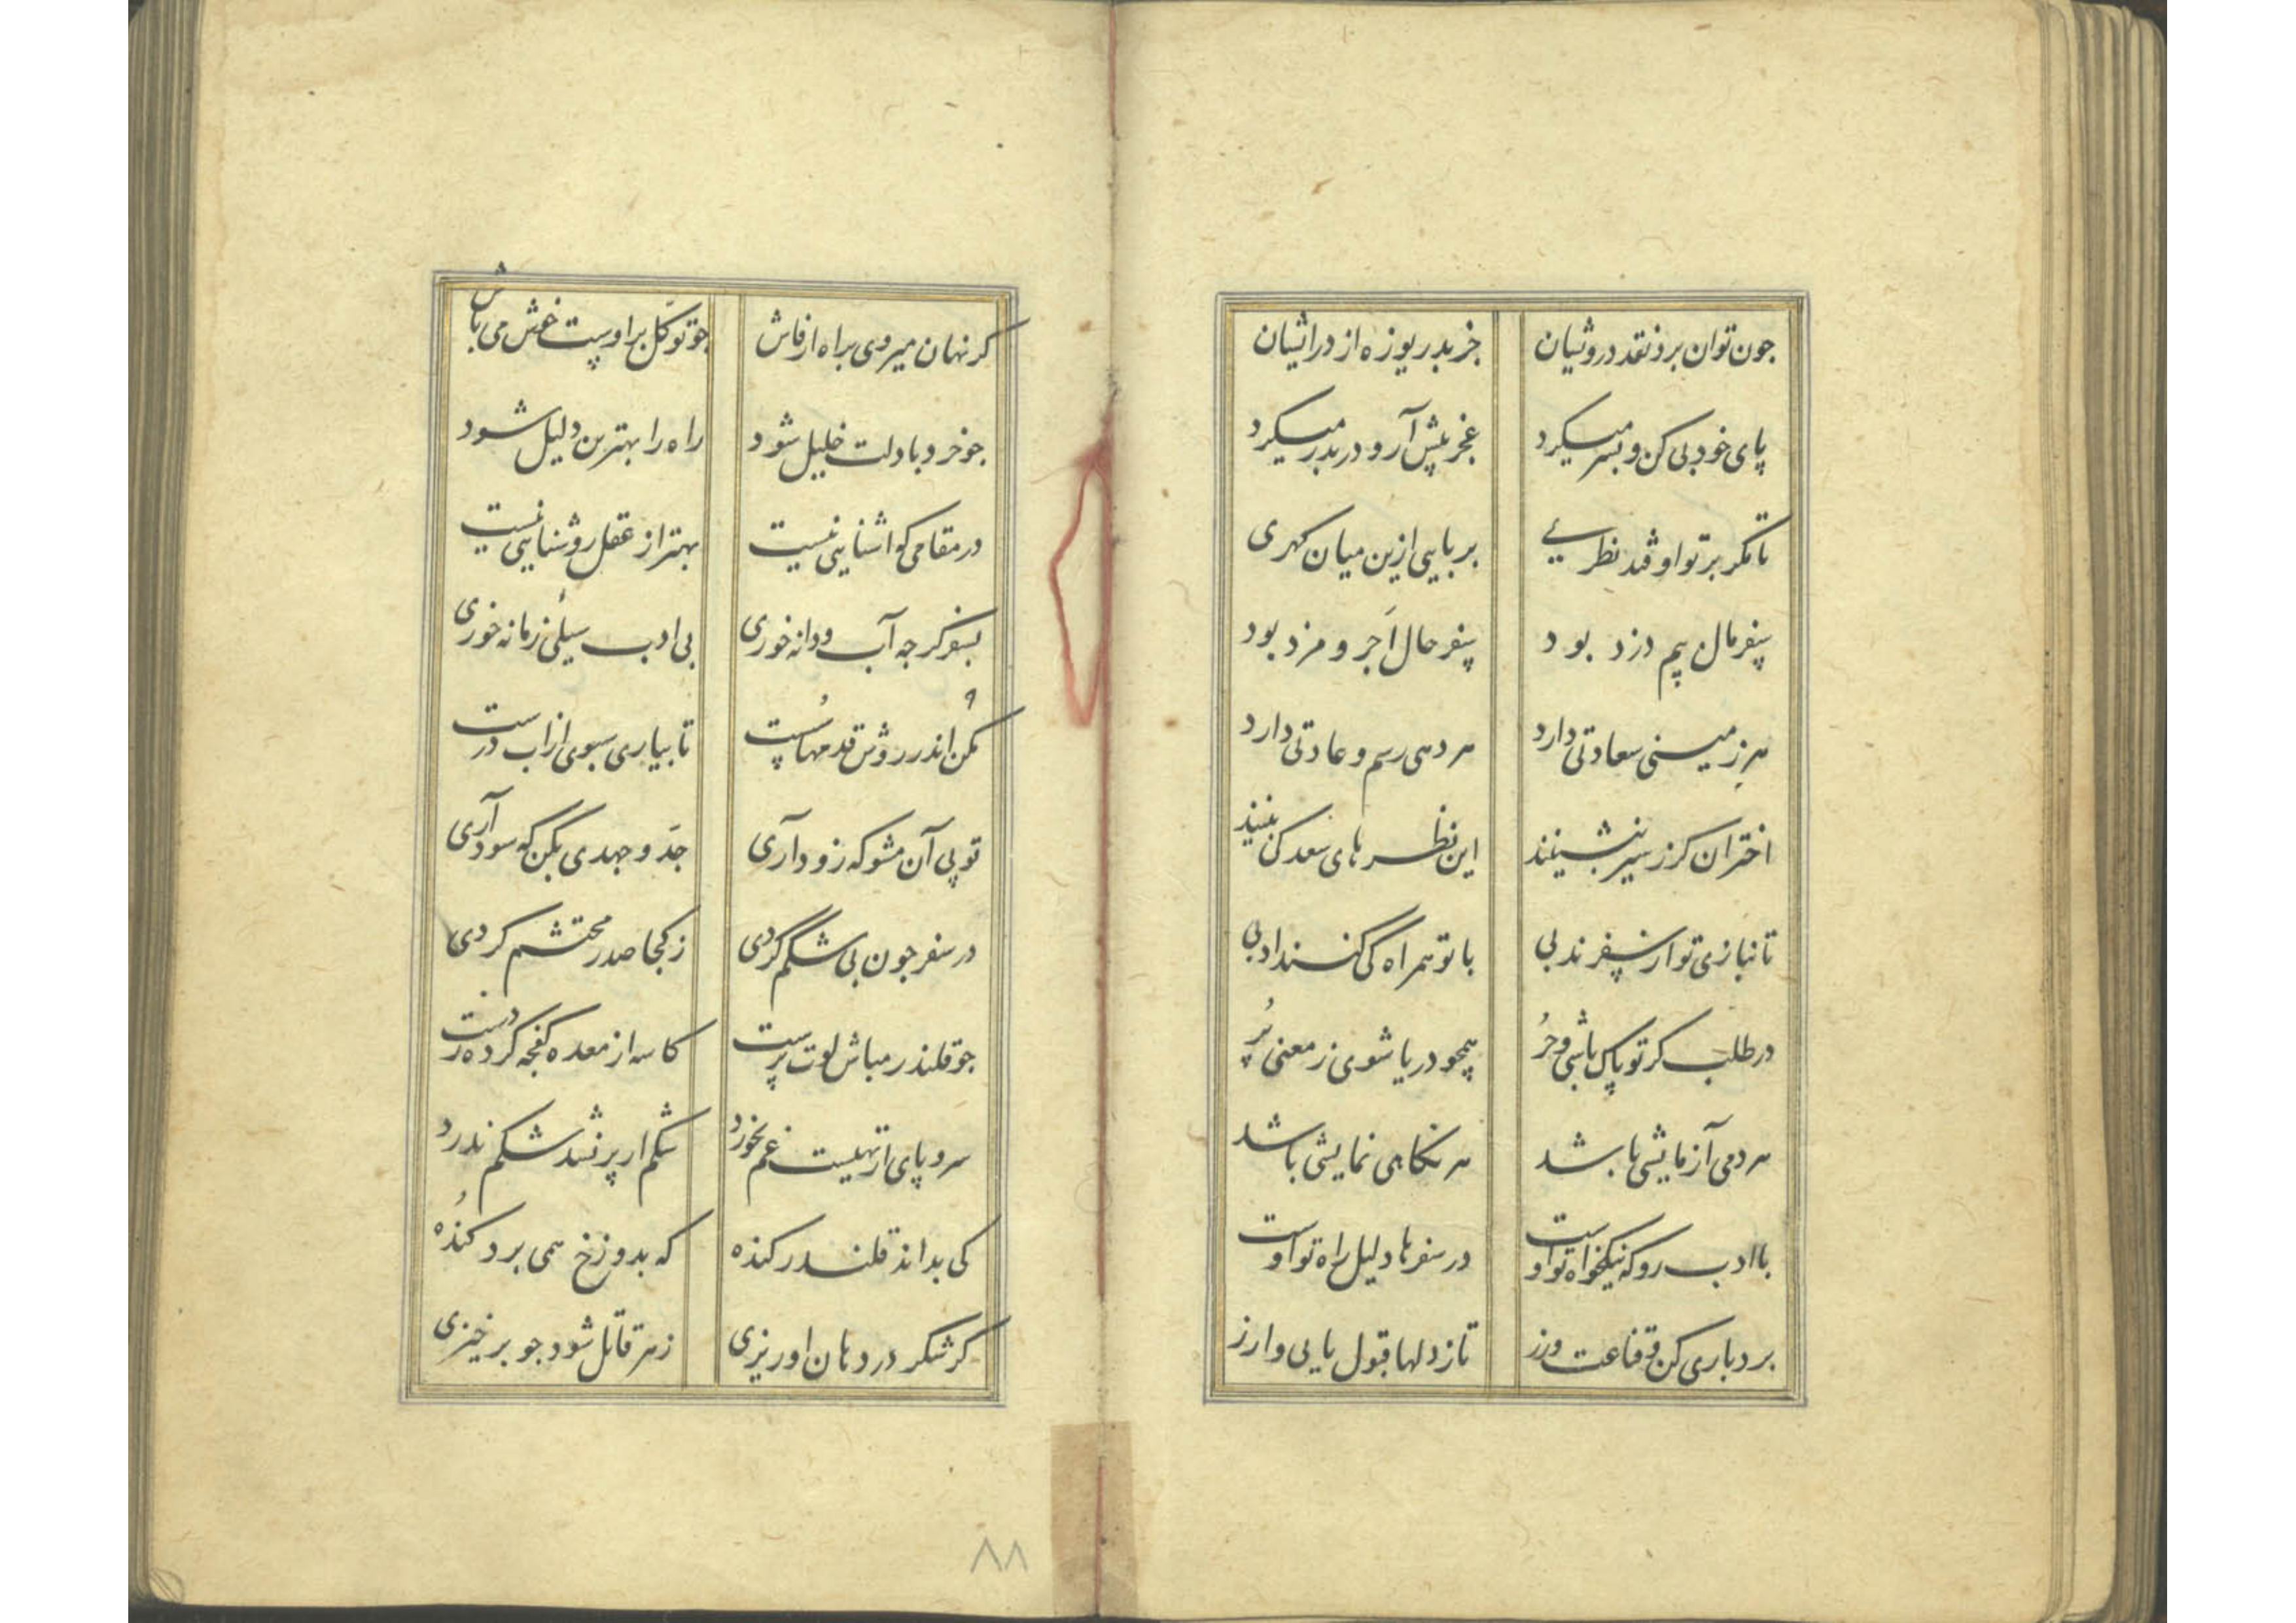 جون توان برد نقد درویشان جز بدریوزه از در ایشان
پای خود پی کن و بسر میکرد عجز پیش آر و در بدر میکرد
تا مکر بر تو اوفتد نظریی بربایی ازین میان کهری
سفر مال بیم دزد بود سفر حال اَجر و مزد بود
هر زمینی سعادتی دارد هر دهی رسم و عادتی دارد
اختران کز سیر بنشینند این نظرهای سعد کی بینند
تا نبازی تو ار سفر ندبی با تو همراه کی کند ادبی
در طلب کر تو پاک باشی و حُر همجو دریا شوی ز معنی پُر
هر دمی آزمایشی باشد هر نکاهی نمایشی باشد
با ادب رو که نیکخواه تو اوست در سفرها دلیل راه تو اوست
بردباری کن و قناعت ورز تا ز دلها قبول یابی و ارز
کر نهان میروی براه ار فاش جو توکّل براوست خوش می باش
جو خرد با دلت خلیل شود راه را بهترین دلیل شود
در مقامی که اشنایی نیست بهتر از عقل روشنایی نیست
بسفر کرجه آب و دانه خوری بی ادب سیلی زمانه خوری
مکن اندر روش قدمها سُست تا بیاری سبوی از اب درست
تو پی آن مشو که زود آری جدّ و جهدی بکن که سود آری
در سفر جون پی شکم کردی ز کجا صدر محتشم کردی
جو قلندر مباش لوت پرست کاسه از معده کفجه کرده ز دست
سر و پای ار تهیست غم نخورد شکم ار پر نشد شکم ندرد
کی بداند قلندر کنده که بدوزخ همی برد کُنده
کر شکر در دهان او ریزی زهر قاتل شود جو برخیزی
۸۸